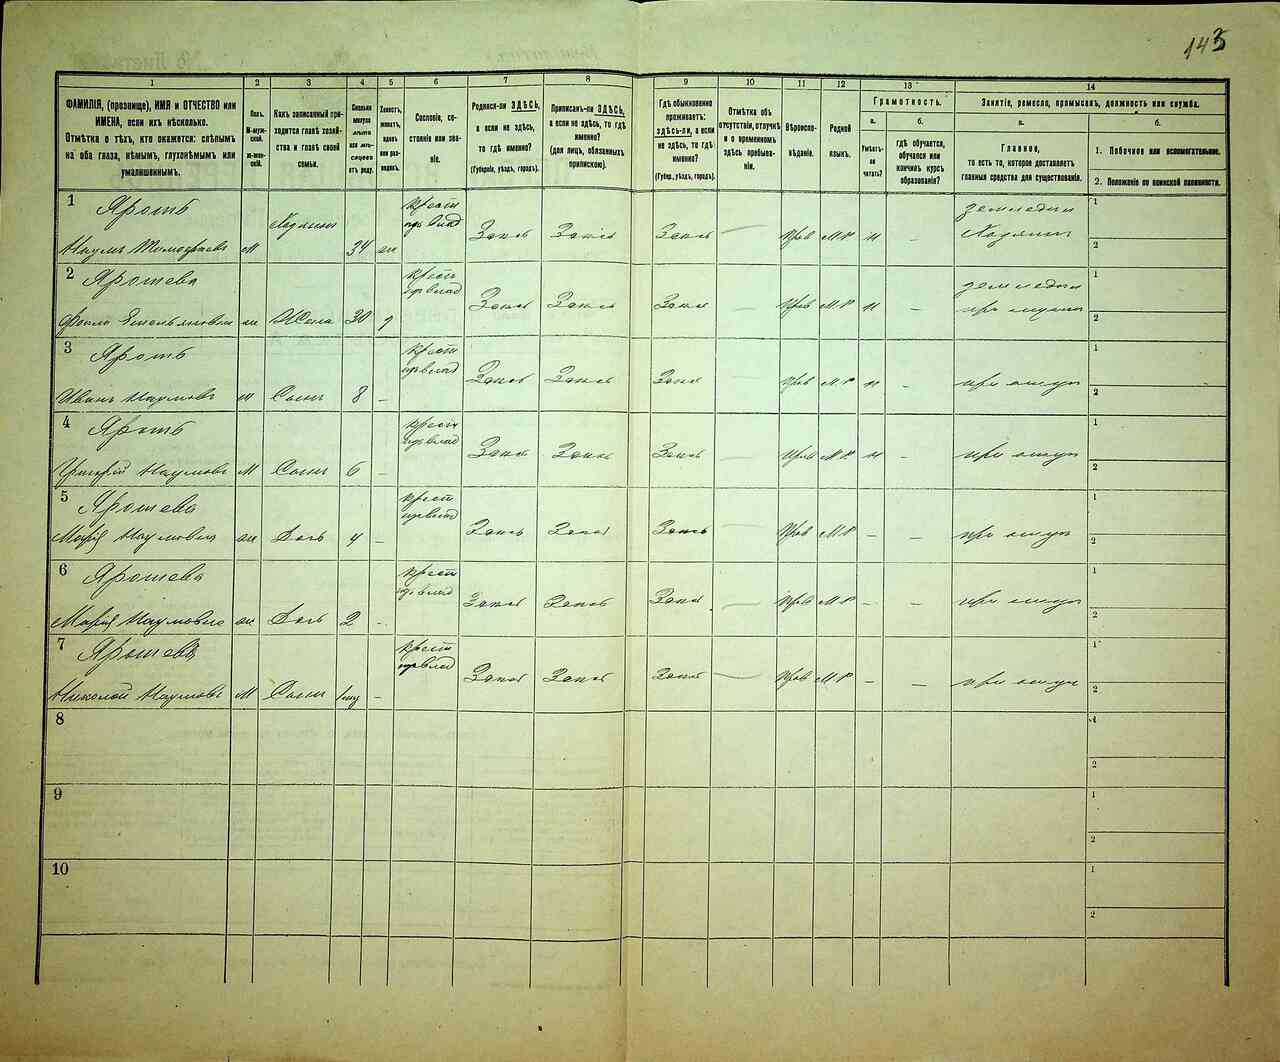 143
1 2 3 4 5 6 7 8 9 10 11 12 13 14
ФАМИЛІЯ, (прозвище), ИМЯ и ОТЧЕСТВО или
ИМЕНА, если ихъ нѣсколько.
Отмѣтка о тѣхъ, кто окажется: слѣпымъ
на оба глаза, нѣмымъ, глухонѣмымъ или
умалишеннымъ.
Полъ.
М-муж-
ской.
Ж-жен-
скій.
Какъ записанный при-
ходится главѣ хозяй-
ства и главѣ своей
семьи.
Сколько
минуло
лѣтъ
или мѣ-
сяцевъ
отъ роду.
Холостъ,
женатъ,
вдовъ
или раз-
веденъ.
Сословіе, со-
стояніе или зва-
ніе.
Родился-ли ЗДѢСЬ,
а если не здѣсь,
то гдѣ именно?
(Губернія, уѣздъ, городъ).
Приписанъ-ли ЗДѢСЬ,
а если не здѣсь, то гдѣ
именно?
(для лицъ, обязанныхъ
припискою).
Гдѣ обыкновенно
проживаетъ:
здѣсь-ли, а если
не здѣсь, то гдѣ
именно?
(Губер., уѣздъ, городъ).
Отмѣтка объ
отсутствіи, отлучкѣ
и о временномъ
здѣсь пребыва-
ніи.
Вѣроиспо-
вѣданіе.
Родной
языкъ.
Грамотность.
а.
Умѣетъ-
ли
читать?
б.
гдѣ обучается,
обучался или
кончилъ курсъ
образованія?
Занятіе, ремесло, промыселъ, должность или служба.
а.
Главное,
то есть то, которое доставляетъ
главныя средства для существованія.
б.
1. Побочное или вспомогательное.
2. Положеніе по воинской повинности.
1 Ярошъ
Наумъ м Хозяинъ 34 крест Здесь Здесь Здесь — Прав МР н - земледел Хозяинъ 1 2
2 Ярошева
Емельяновна ж Жена 30 крест Здесь Здесь Здесь Прав МР н земледел 1 2
3 Ярошъ
Иванъ Наумовъ м Сынъ 8 - крест Здесь Здесь Здесь — Прав МР н - при отцу 1 2
4 Ярошъ
Григорій Наумовъ м Сынъ 6 - крест Здесь Здесь Здесь — Прав МР н - при отцу 1 2
5 Ярошева
Марія Наумовна ж Дочь 4 - крест Здесь Здесь Здесь — Прав МР - - при отцу 1 2
6 Ярошева
Марія Наумовна ж Дочь 2 - крест Здесь Здесь Здесь — Прав МР - - при отцу 1 2
7 Ярошева
Николай Наумовъ м Сынъ - крест Здесь Здесь Здесь — Прав МР - - при отцу 1 2
8 1 2
9 1 2
10 1 2